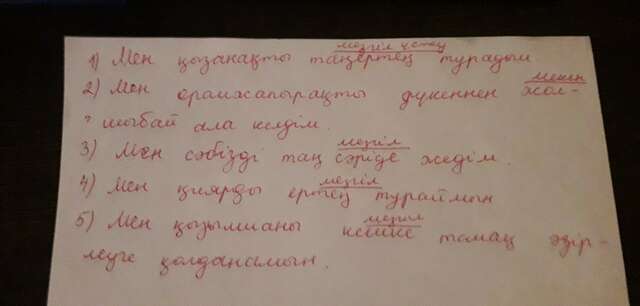 мезгіл үстеу
1) Мен қызанақты таңертең турадым
мекен
2) Мен орамжапырақты дүкеннен жол-
шыбай ала келдім.
мезгіл
3) Мен сәбізді таң сәріде жедім.
мезгіл
4) Мен қиярды ертең тураймын
мезгіл
5) Мен қызылшаны кешке тамақ әзір-
леуге қолданамын.